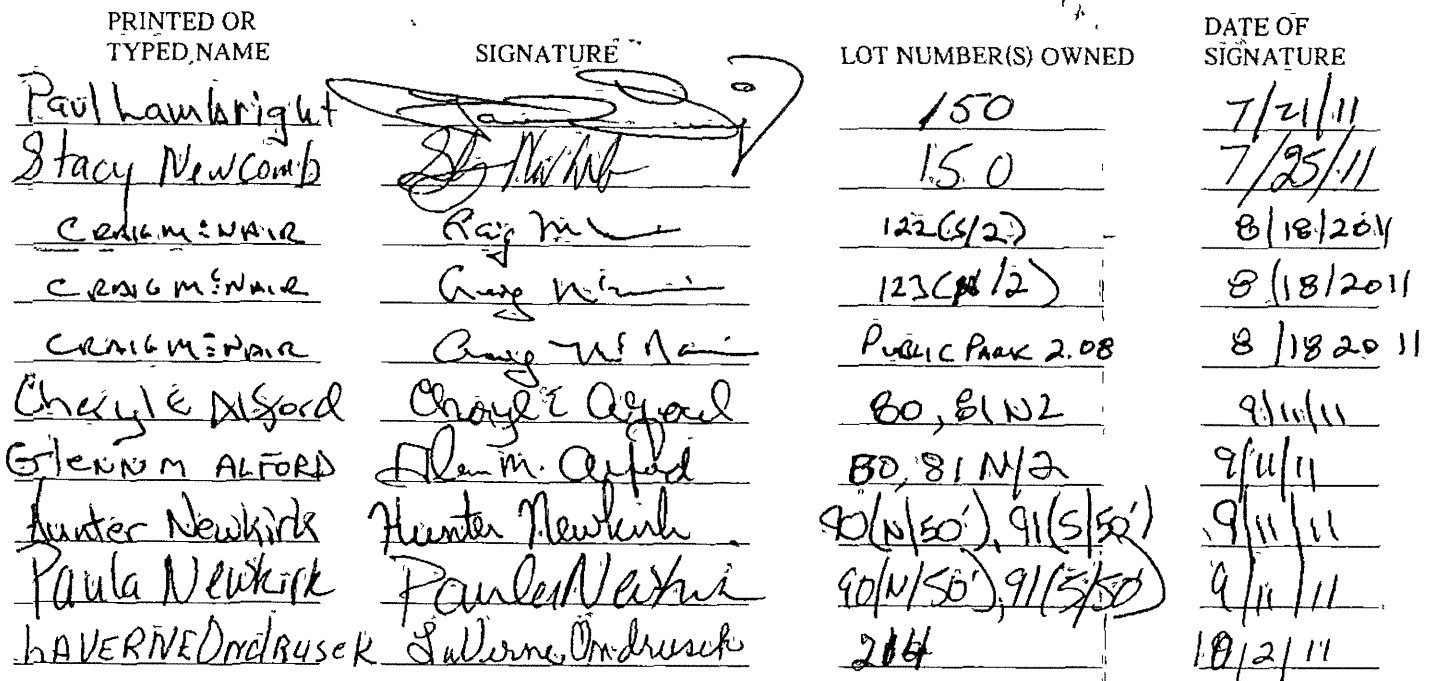 PRINTED OR TYPED NAME SIGNATURE LOT NUMBER(S) OWNED DATE OF SIGNATURE
Paul Lambright 150 7/21/11
Stacy Newcomb 150 7/25/11
CRAIG McNAIR 122(S/2) 8/18/2011
CRAIG McNAIR 123(N/2) 8/18/2011
CRAIG McNAIR Craig McNair PUBLIC PARK 2.08 8/18 2011
Cheryl E Alford Cheryl E Alford 80, 81 N2 9/11/11
GlENN M ALFORD Glenn M. Alford 80, 81 N/2 9/11/11
Hunter Newkirk Hunter Newkirk 90(N/50'), 91(S/50') 9/11/11
Paula Newkirk Paula Newkirk 90(N/50'), 91(S/50') 9/11/11
LAVERNE OndRUSEK LaVerne Ondrusek 10/2/11